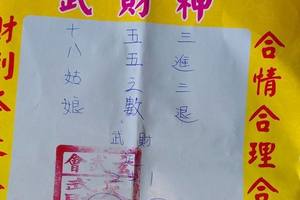 武財神
合情合理合
三進三退
五五之數
十八姑娘
武財
財利